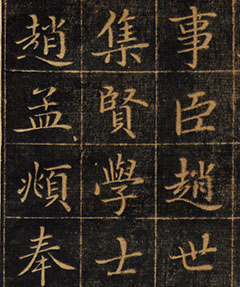 事臣趙世
集賢學士
趙孟頫奉